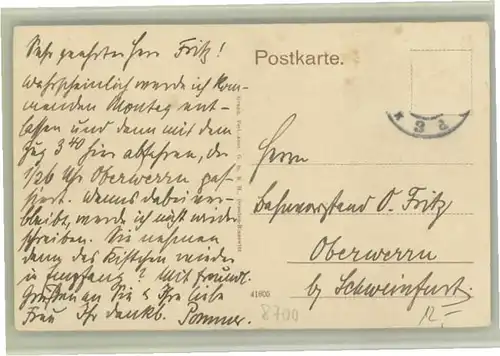 Sehr geehrter Herr Fritz!
Wahrscheinlich werde ich kom-
menden Montag ent-
lassen und dann mit dem
Zug 3 40 hier abfahren, der
1/26 Uhr Oberwerrn pas-
siert. Wenns dabei ver-
bleibt, werde ich nicht wieder
schreiben. Sie nehmen
dann das Kistchen wieder
in Empfang? Mit freundl.
Grüßen an Sie & Ihre liebe
Frau Ihr dankb. Pommer.
Postkarte.
Herrn
Bahnvorstand O. Fritz
Oberwerrn
by Schweinfurt.
41600
8700
12.-